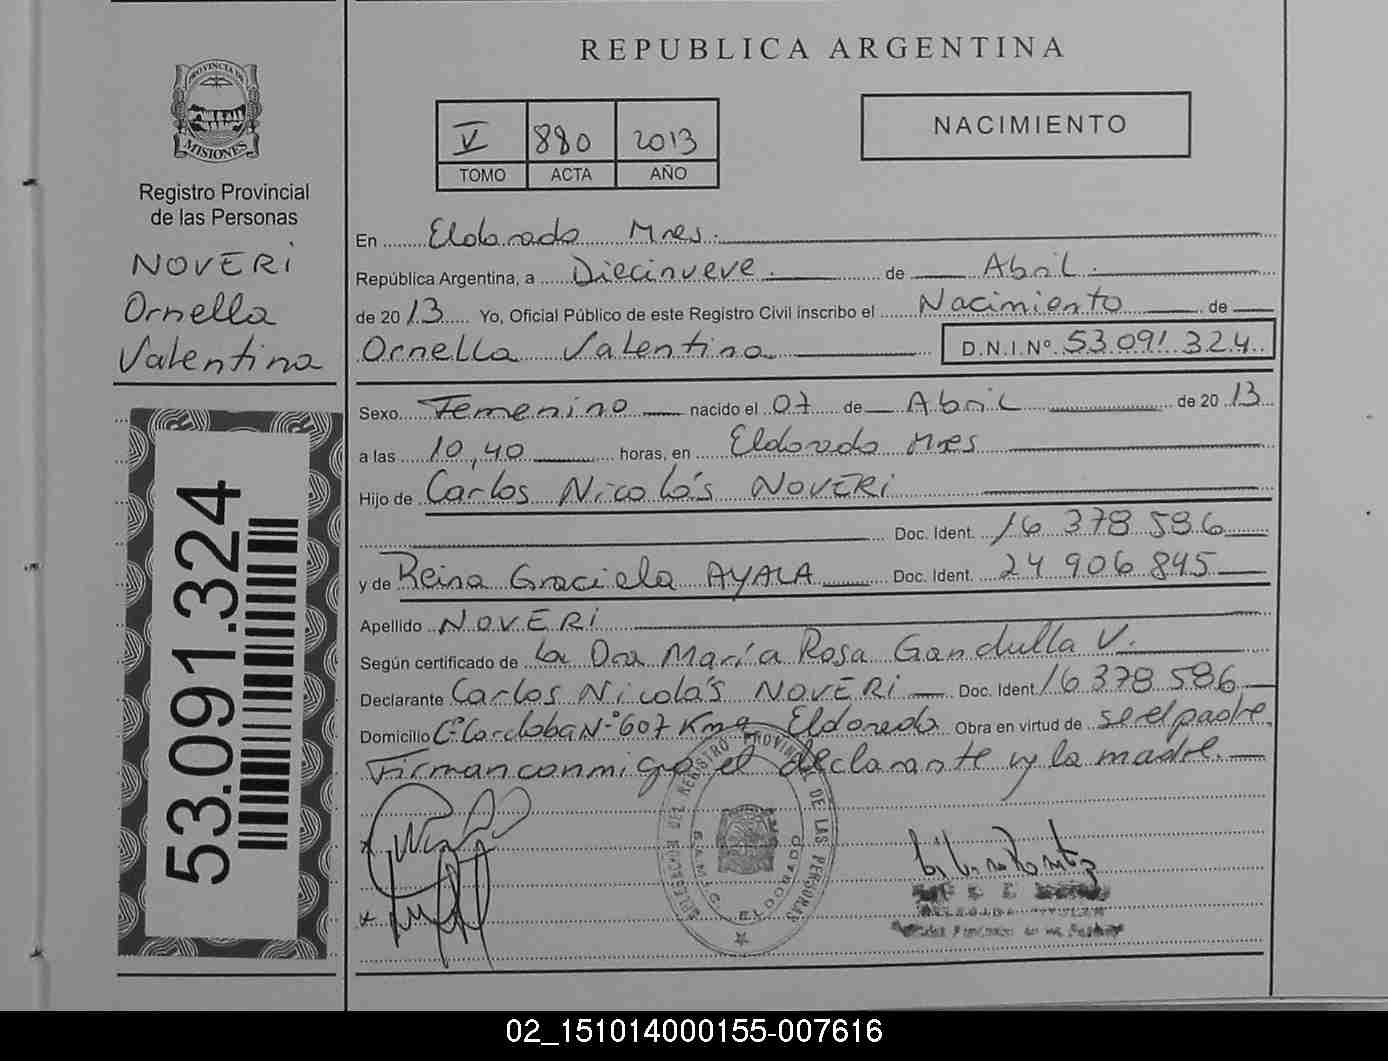 REPUBLICA ARGENTINA
PROVINCIA DE
MISIONES
Registro Provincial
de las Personas
NOVERI
Ornella
Valentina
53.091.324
V 880 2013
TOMO ACTA AÑO
NACIMIENTO
En Eldorado Mnes.
República Argentina, a Diecinueve de Abril
de 2013 Yo, Oficial Público de este Registro Civil inscribo el Nacimiento de
Ornella Valentina D.N.I.Nº 53.091.324
Sexo Femenino nacido el 07 de Abril de 2013
a las 10,40 horas, en Eldorado Mnes
Hijo de Carlos Nicolás NOVERI
Doc. Ident. 16 378 586
y de Reina Graciela AYALA Doc. Ident. 24 906 845
Apellido NOVERI
Según certificado de la Dra María Rosa Gandulla V.
Declarante Carlos Nicolás NOVERI Doc. Ident 16 378 586
Domicilio Cº Cordoba Nº 607 Km 9 Eldorado Obra en virtud de ser el padre
Firman conmigo el declarante y la madre.
DELEGACION DEL REGISTRO PROVINCIAL DE LAS PERSONAS
ELDORADO
02_151014000155-007616